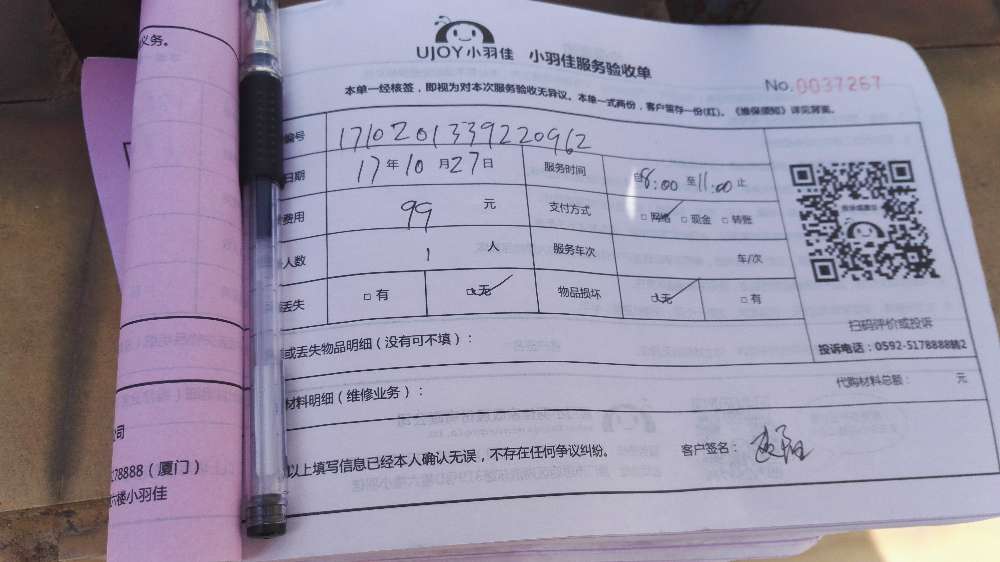 UJOY小羽佳 小羽佳服务验收单
No.0037267
本单一经核签，即视为对本次服务验收无异议。本单一式两份，客户留存一份(红)。《维保须知》详见背面。
编号 1710201339220962
日期 17年10月27日 服务时间 自8:00至11:00止
费用 99 元 支付方式 □网络 □现金 □转账
人数 1 人 服务车次 车/次
丢失 □有 □无 物品损坏 □无 □有
扫码评价或投诉
投诉电话：0592-5178888转2
或丢失物品明细（没有可不填）：
材料明细（维修业务）：
代购材料总额： 元
以上填写信息已经本人确认无误，不存在任何争议纠纷。
客户签名：
义务。
公司
178888（厦门）
六楼小羽佳